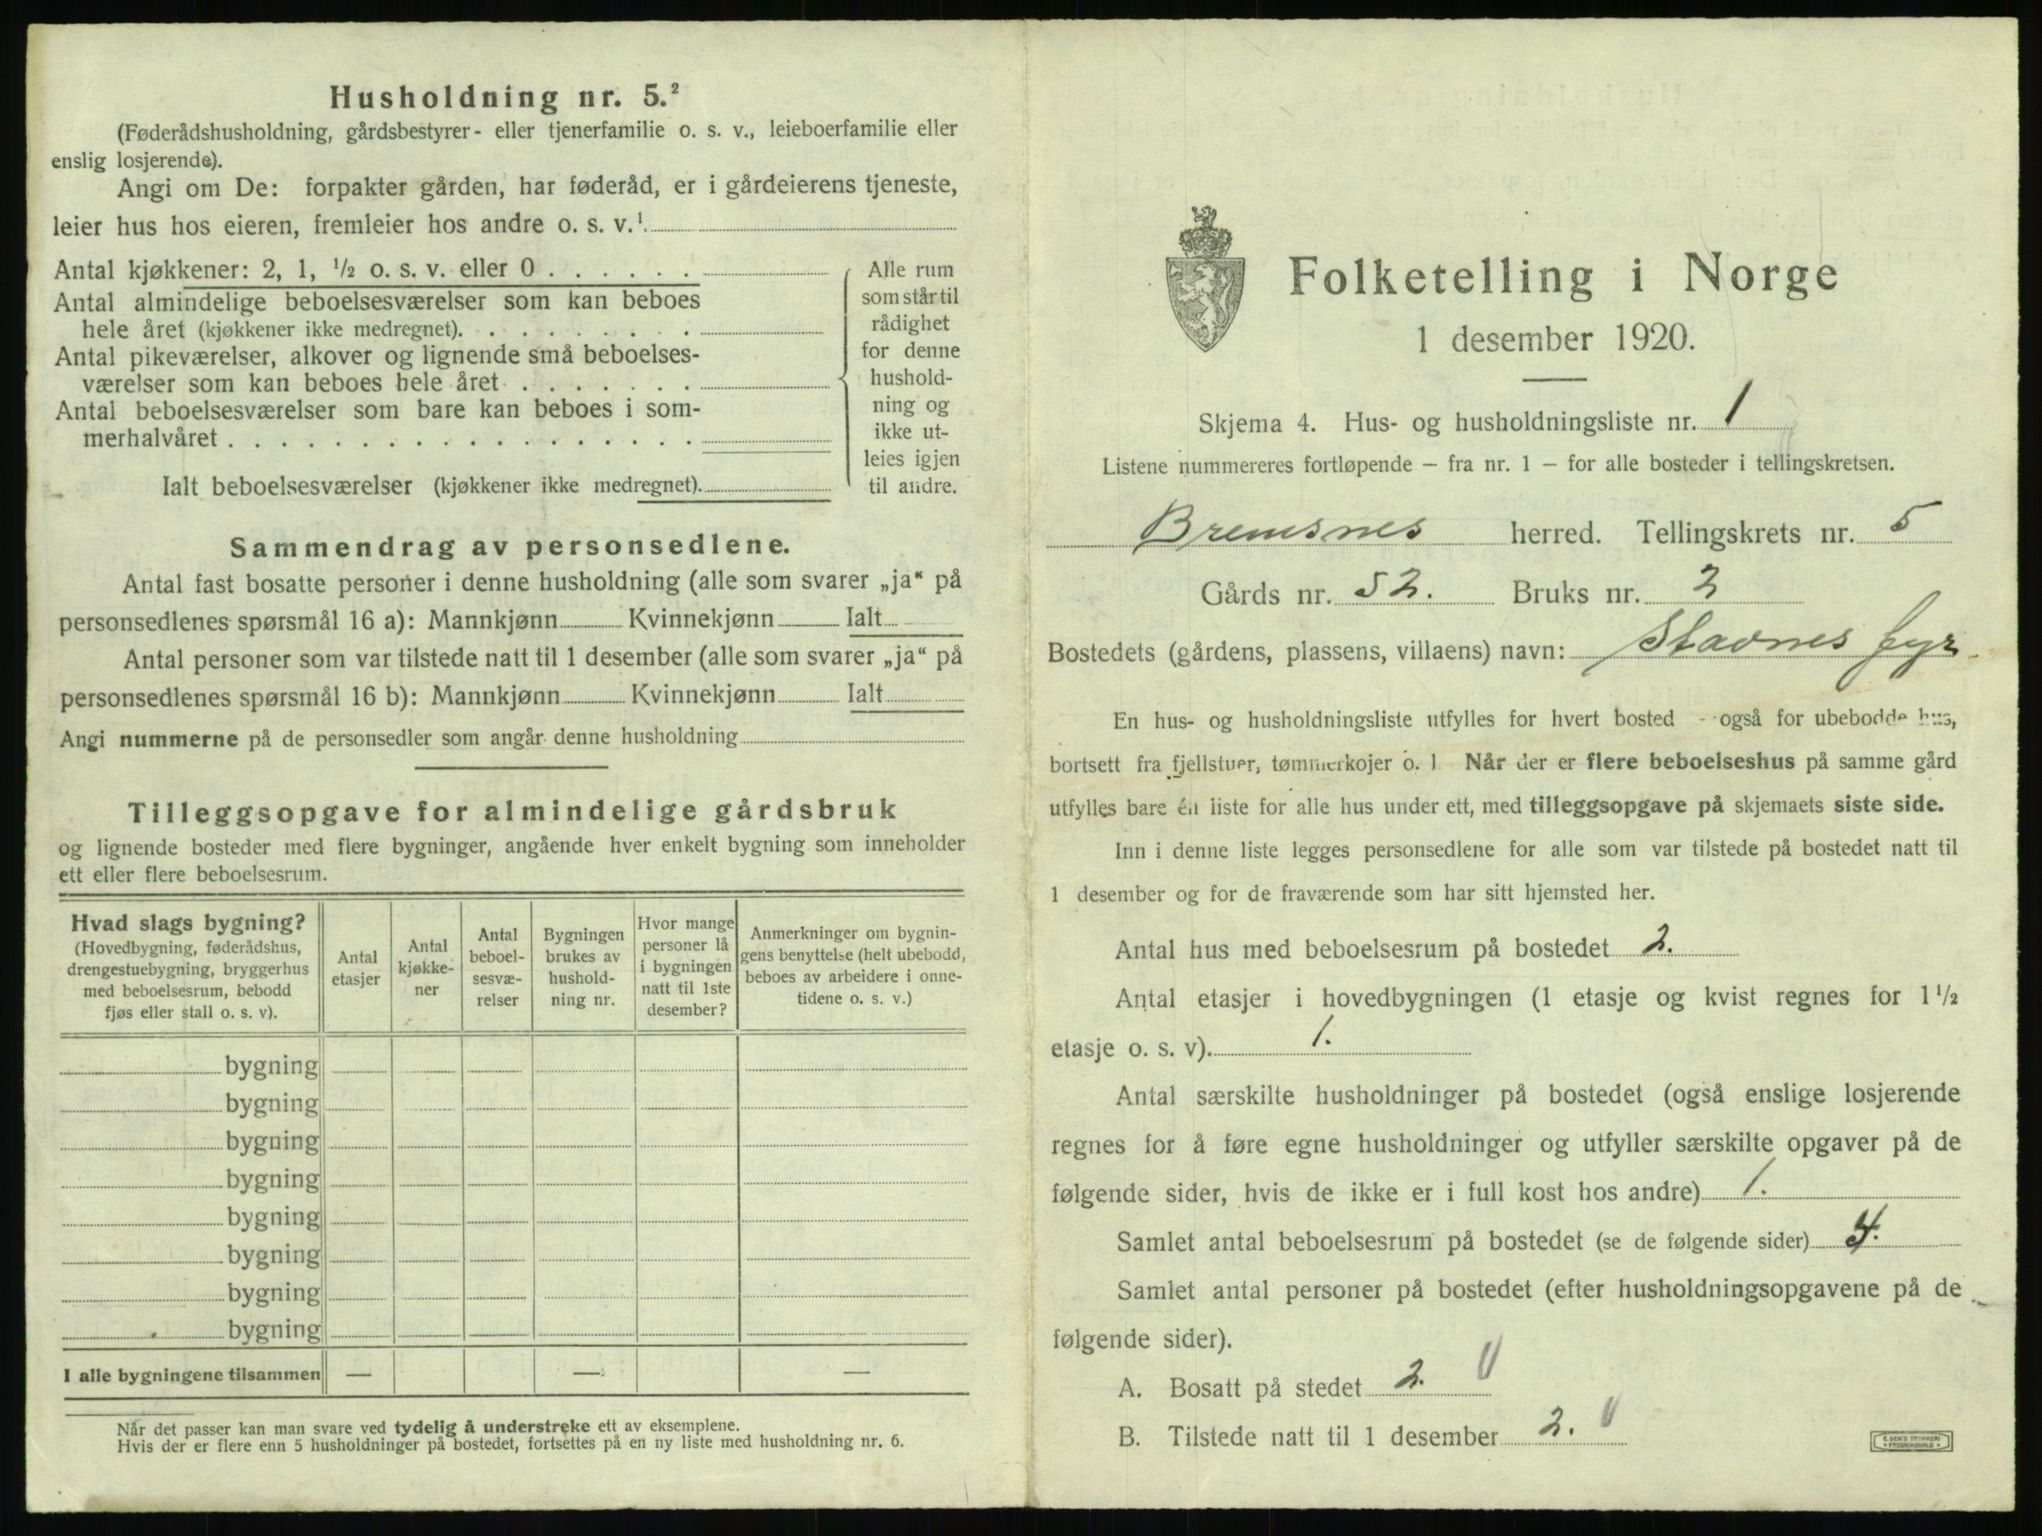 Husholdning nr. 5.²
(Føderådshusholdning, gårdsbestyrer- eller tjenerfamilie o. s. v., leieboerfamilie eller
enslig losjerende).
Angi om De: forpakter gården, har føderåd, er i gårdeierens tjeneste,
leier hus hos eieren, fremleier hos andre o. s. v.¹
Antal kjøkkener: 2, 1, ½ o. s. v. eller 0 . . . . . .
Antal almindelige beboelsesværelser som kan beboes
hele året (kjøkkener ikke medregnet). . . . . . . . .
Antal pikeværelser, alkover og lignende små beboelses-
værelser som kan beboes hele året . . . . . . .
Antal beboelsesværelser som bare kan beboes i som-
merhalvåret . . . . . . . . . . . . . . . . . .
Ialt beboelsesværelser (kjøkkener ikke medregnet).
Alle rum
som står til
rådighet
for denne
hushold-
ning og
ikke ut-
leies igjen
til andre.
Sammendrag av personsedlene.
Antal fast bosatte personer i denne husholdning (alle som svarer „ja“ på
personsedlenes spørsmål 16 a): Mannkjønn Kvinnekjønn Ialt
Antal personer som var tilstede natt til 1 desember (alle som svarer „ja“ på
personsedlenes spørsmål 16 b): Mannkjønn Kvinnekjønn Ialt
Angi nummerne på de personsedler som angår denne husholdning
Tilleggsopgave for almindelige gårdsbruk
og lignende bosteder med flere bygninger, angående hver enkelt bygning som inneholder
ett eller flere beboelsesrum.
Hvad slags bygning?
(Hovedbygning, føderådshus,
drengestuebygning, bryggerhus
med beboelsesrum, bebodd
fjøs eller stall o. s. v).
Antal
etasjer
Antal
kjøkke-
ner
Antal
beboel-
sesvæ-
relser
Bygningen
brukes av
hushold-
ning nr.
Hvor mange
personer lå
i bygningen
natt til 1ste
desember?
Anmerkninger om bygnin-
gens benyttelse (helt ubebodd,
beboes av arbeidere i onne-
tidene o. s. v.)
bygning
bygning
bygning
bygning
bygning
bygning
bygning
bygning
I alle bygningene tilsammen — — —
Når det passer kan man svare ved tydelig å understreke ett av eksemplene.
Hvis der er flere enn 5 husholdninger på bostedet, fortsettes på en ny liste med husholdning nr. 6.
Folketelling i Norge
1 desember 1920.
Skjema 4. Hus- og husholdningsliste nr. 1
Listene nummereres fortløpende – fra nr. 1 – for alle bosteder i tellingskretsen.
Bremsnes herred. Tellingskrets nr. 5
Gårds nr. 52. Bruks nr. 2
Bostedets (gårdens, plassens, villaens) navn: Stavnes fyr
En hus- og husholdningsliste utfylles for hvert bosted - også for ubebodde hus,
bortsett fra fjellstuer, tømmerkojer o. l. Når der er flere beboelseshus på samme gård
utfylles bare én liste for alle hus under ett, med tilleggsopgave på skjemaets siste side.
Inn i denne liste legges personsedlene for alle som var tilstede på bostedet natt til
1 desember og for de fraværende som har sitt hjemsted her.
Antal hus med beboelsesrum på bostedet 2.
Antal etasjer i hovedbygningen (1 etasje og kvist regnes for 1½
etasje o. s. v). 1.
Antal særskilte husholdninger på bostedet (også enslige losjerende
regnes for å føre egne husholdninger og utfyller særskilte opgaver på de
følgende sider, hvis de ikke er i full kost hos andre) 1.
Samlet antal beboelsesrum på bostedet (se de følgende sider) 4.
Samlet antal personer på bostedet (efter husholdningsopgavene på de
følgende sider).
A. Bosatt på stedet 2.
B. Tilstede natt til 1 desember 2.